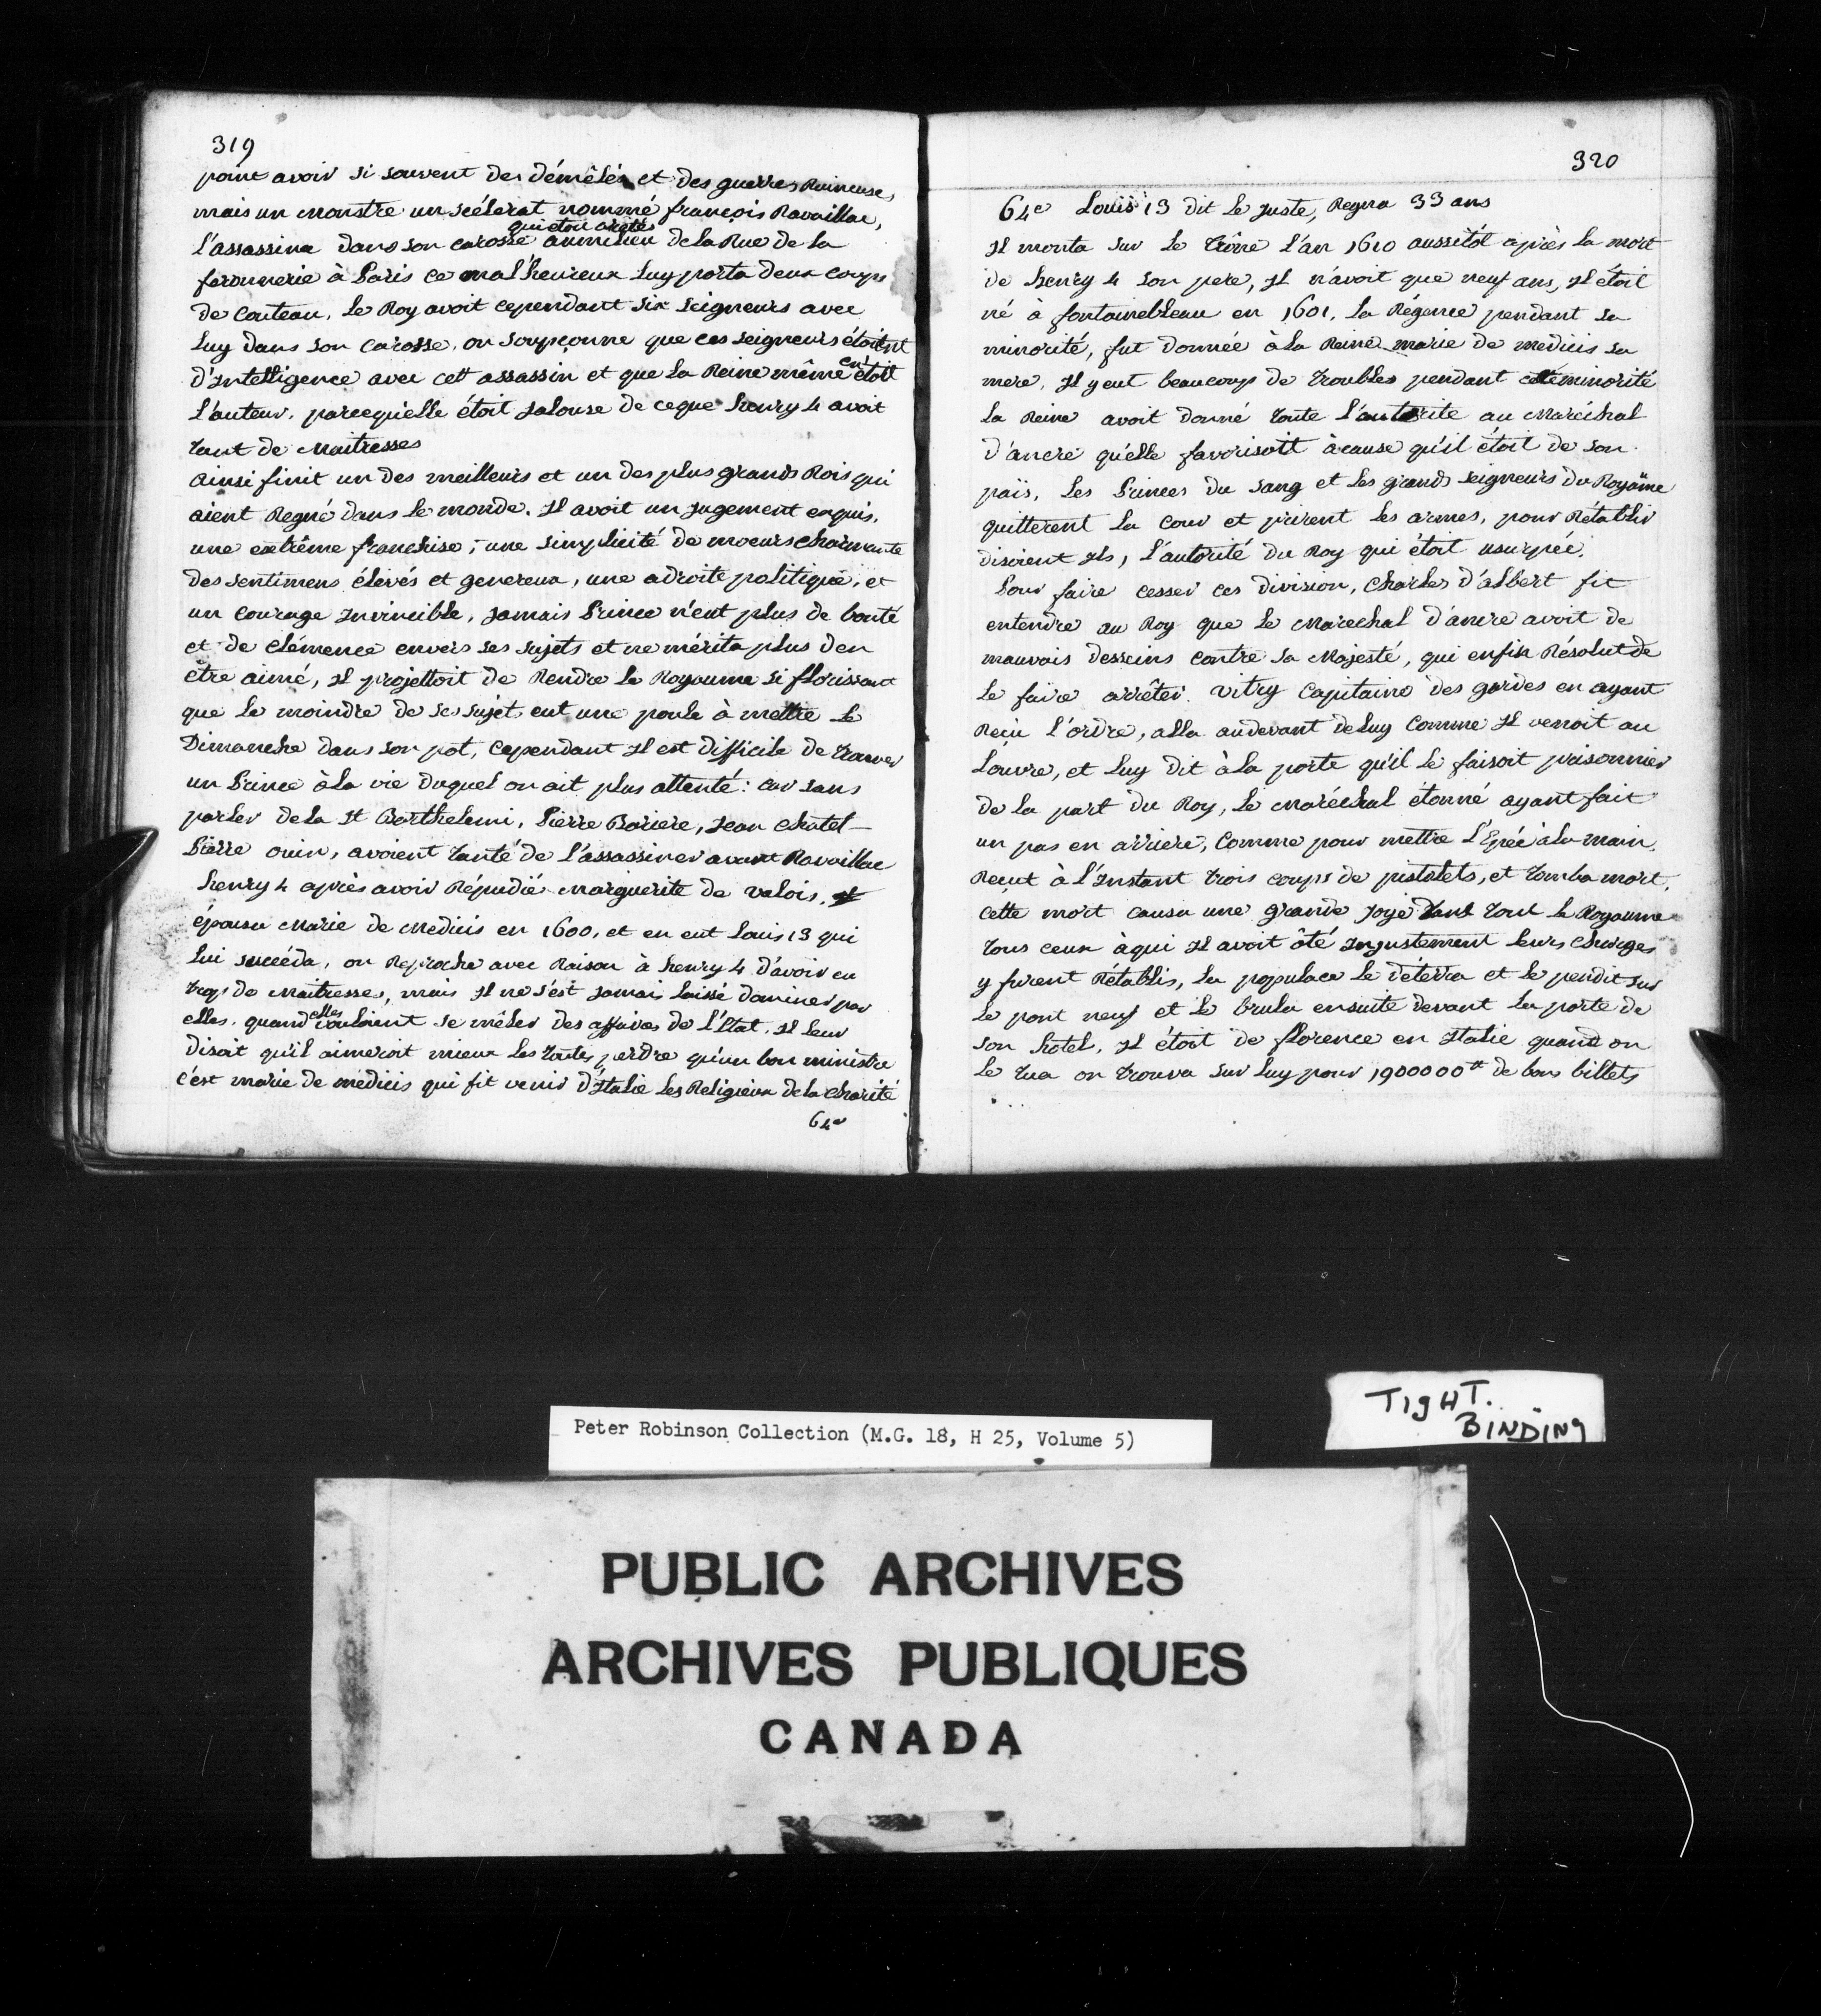 319
point avoir si souvent des démêlés et des guerres Ruineuses,
mais un monstre un scélérat nommé françois Ravaillac,
qui étoit arêté
l'assassina dans son carosse aumilieu dela Rue de la
faronnerie à Paris ce mal'heureux Luy porta deux coups
de couteau, le Roy avoit cependant six seigneurs avec
Luy dans son carosse, on soupçonne que ces seigneurs étoient
d'Intelligence avec cett assassin et que la Reine même en étoit
l'auteur, parcequ'elle étoit jalouse de ceque henry 4 avoit
tant de Maitresses
ainsi finit un des meilleurs et un des plus grands Rois qui
aient Regné dans le monde. Il avoit un jugement exquis,
une extrême franchise, une simplicité de moeurs charmante
des sentimens élevés et genereux, une adroite politique, et
un courage Invincible, jamais Prince n'eut plus de bonté
et de clémence envers ses sujets et ne mérita plus den
être aimé, Il projettoit de Rendre le Royaume si florissant
que le moindre de ses sujets eut une poule à mettre le
Dimanche dans son pot, cependant Il est difficile de trouver
un Prince àla vie duquel on ait plus attenté: car sans
parler dela St Barthelemi, Pierre Bariere, jean chatel
Pierre ouin, avoient tanté de l'assassiner avant Ravaillac
henry 4 après avoir Répudié Marguerite de valois,
épousa Marie de Medicis en 1600, et en eut Louis 13 qui
lui succéda, on Reproche avec Raison à henry 4 d'avoir eu
trop de Maitresses, mais Il ne s'est jamais laissé dominer par
elles, quand elles vouloient se mêler des affaires de l'Etat, Il leur
disoit qu'il aimeroit mieux les toutes perdre qu'un bon ministre
c'est marie de médicis qui fit venir d'Italie les Religieux dela charité
64e
320
64e Louis 13 dit le juste, Regna 33 ans
Il monta sur le trône l'an 1610 aussitôt après la mort
de henry 4 son pere, Il n'avoit que neuf ans, Il étoit
né à fontainebleau en 1601, la Régence pendant sa
minorité, fut donnée àla Reine marie de medicis sa
mere, Il y eut beaucoup de troubles pendant cette minorité
la Reine avoit donné toute l'autorité au Maréchal
d'ancre qu'elle favorisoit àcause qu'il étoit de son
païs, les Princes du sang et les grands seigneurs du Royaume
quitterent la Cour et prirent les armes, pour Rétablir
disoient Ils, l'autorité du Roy qui étoit usurpée,
Pour faire cesser ces division, charles d'albert fit
entendre au Roy que le Marechal d'ancre avoit de
mauvais desseins contre sa Majesté, qui enfin Résolut de
le faire arrêter. vitry capitaine des gardes en ayant
Reçu l'ordre, alla audevant deluy comme Il venoit au
Louvre, et luy dit àla porte qu'il le faisoit prisonnier
de la part du Roy, le maréchal étonné ayant fait
un pas en arriere, comme pour mettre l'Epée àla main,
Reçut à l'Instant trois coups de pistolets, et tomba mort,
cette mort causa une grande joye dans tout le Royaume
tous ceux àqui Il avoit ôté Injustement leurs charges
y furent Rétablis, la populace le déterra et le pendit sur
le pont neuf et le brula ensuite devant la porte de
son hôtel, Il étoit de florence en Italie quand on
le tua on trouva sur luy pour 1900000 tt de bons billets
TIGHT.
BINDING
Peter Robinson Collection (M.G. 18, H 25, Volume 5)
PUBLIC ARCHIVES
ARCHIVES PUBLIQUES
CANADA